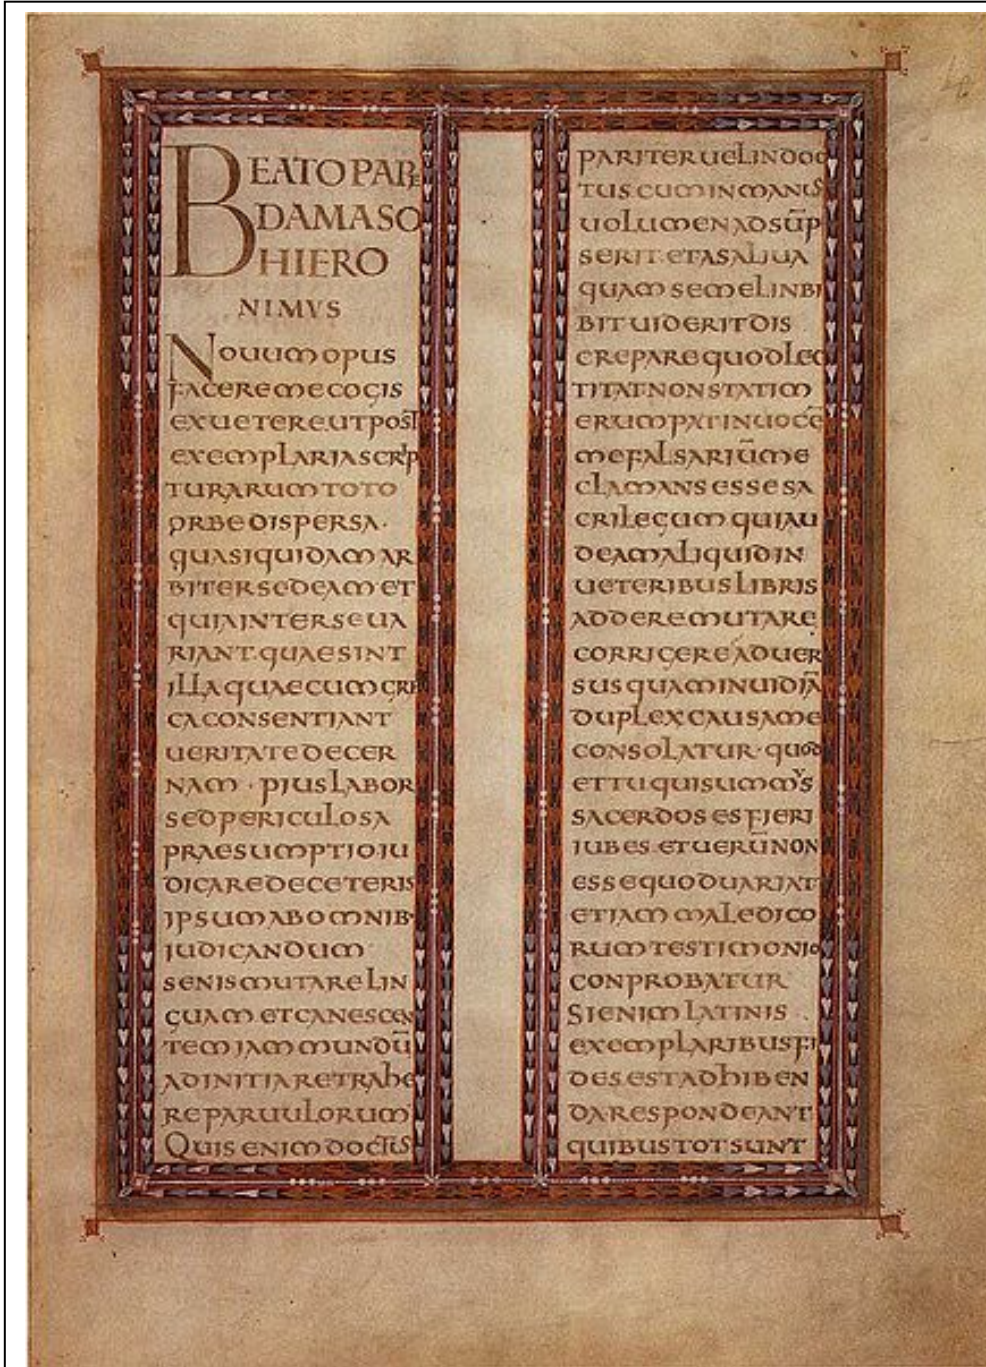 BEATO PAPE
DAMASO
HIERO
NIMVS
Nouum opus
facere me cogis
ex uetere ut post
exemplaria scrip
turarum toto
orbe dispersa·
quasi quidam ar
biter sedeam et
quia inter se ua
riant·quae sint
illa quae cum gre
ca consentiant
ueritate decer
nam · pius labor
sed periculosa
praesumptio·iu
dicare de ceteris
ipsum ab omnib·
iudicandum
senis mutare lin
guam et canescen
tem iam mundū
ad initia retrahe
re paruulorum
Quis enim doctus
pariter uel indoc
tus·cum in manus
uolumen adsūp
serit·et a saliua
quam semel inbi
bit uiderit dis
crepare quod lec
titat·non statim
erumpat in uocē
me falsariūme
clamans esse sa
crilegum qui au
deam aliquid in
ueteribus libris
addere mutare
corrigere aduer
sus quam inuidiā
duplex causa me
consolatur·quod
et tu qui summus
sacerdos es fieri
iubes·et uerū non
esse quod uariat
etiam maledico
rum testimonio
conprobatur
Si enim latinis
exemplaribus fi
des·est adhiben
da respondeant
quibus tot sunt